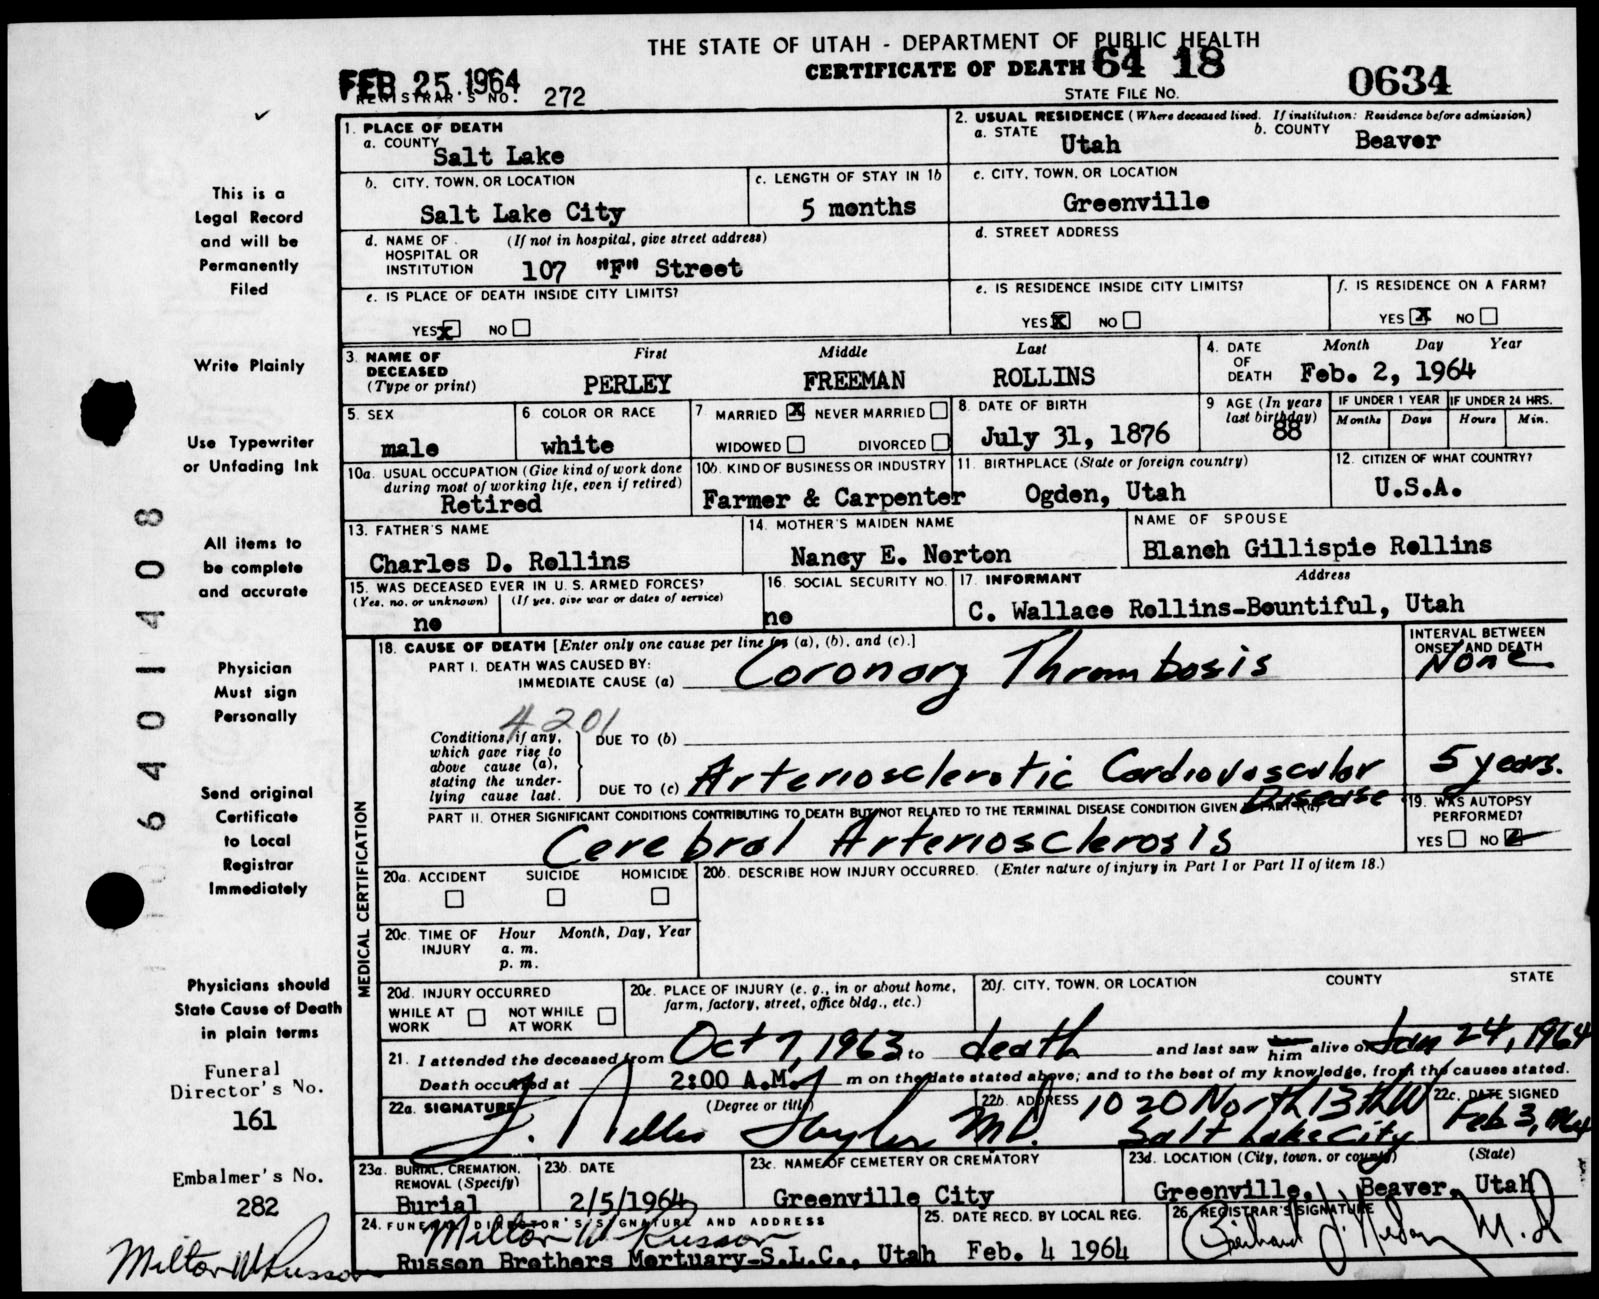 THE STATE OF UTAH - DEPARTMENT OF PUBLIC HEALTH
CERTIFICATE OF DEATH 64 18
FEB 25 1964
REGISTRAR'S NO. 272
STATE FILE NO. 0634
1. PLACE OF DEATH
a. COUNTY
Salt Lake
2. USUAL RESIDENCE (Where deceased lived. If institution: Residence before admission)
a. STATE Utah b. COUNTY Beaver
b. CITY, TOWN, OR LOCATION
Salt Lake City
c. LENGTH OF STAY IN 1b
5 months
c. CITY, TOWN, OR LOCATION
Greenville
d. NAME OF HOSPITAL OR INSTITUTION (If not in hospital, give street address)
107 "F" Street
d. STREET ADDRESS
e. IS PLACE OF DEATH INSIDE CITY LIMITS?
YES X NO
e. IS RESIDENCE INSIDE CITY LIMITS?
YES X NO
f. IS RESIDENCE ON A FARM?
YES X NO
3. NAME OF DECEASED (Type or print)
First Middle Last
PERLEY FREEMAN ROLLINS
4. DATE OF DEATH
Month Day Year
Feb. 2, 1964
5. SEX
male
6 COLOR OR RACE
white
7 MARRIED X NEVER MARRIED
WIDOWED DIVORCED
8. DATE OF BIRTH
July 31, 1876
9 AGE (In years last birthday)
88
IF UNDER 1 YEAR
Months Days
IF UNDER 24 HRS.
Hours Min.
10a. USUAL OCCUPATION (Give kind of work done
during most of working life, even if retired)
Retired
10b. KIND OF BUSINESS OR INDUSTRY
Farmer & Carpenter
11. BIRTHPLACE (State or foreign country)
Ogden, Utah
12. CITIZEN OF WHAT COUNTRY?
U.S.A.
13. FATHER'S NAME
Charles D. Rollins
14. MOTHER'S MAIDEN NAME
Nancy E. Norton
NAME OF SPOUSE
Blanch Gillispie Rollins
15. WAS DECEASED EVER IN U.S. ARMED FORCES?
(Yes, no, or unknown) (If yes, give war or dates of service)
no
16. SOCIAL SECURITY NO.
no
17. INFORMANT Address
C. Wallace Rollins-Bountiful, Utah
MEDICAL CERTIFICATION
18. CAUSE OF DEATH [Enter only one cause per line for (a), (b), and (c).]
PART I. DEATH WAS CAUSED BY:
IMMEDIATE CAUSE (a) Coronary Thrombosis
INTERVAL BETWEEN ONSET AND DEATH
None
4201
Conditions, if any,
which gave rise to
above cause (a),
stating the under-
lying cause last.
DUE TO (b)
DUE TO (c) Arteriosclerotic Cardiovascular Disease
5 years.
PART II. OTHER SIGNIFICANT CONDITIONS CONTRIBUTING TO DEATH BUT NOT RELATED TO THE TERMINAL DISEASE CONDITION GIVEN IN PART I(a)
Cerebral Arteriosclerosis
19. WAS AUTOPSY PERFORMED?
YES NO
20a. ACCIDENT SUICIDE HOMICIDE
20b. DESCRIBE HOW INJURY OCCURRED. (Enter nature of injury in Part I or Part II of item 18.)
20c. TIME OF INJURY
Hour Month, Day, Year
a. m.
p. m.
20d. INJURY OCCURRED
WHILE AT WORK NOT WHILE AT WORK
20e. PLACE OF INJURY (e. g., in or about home,
farm, factory, street, office bldg., etc.)
20f. CITY, TOWN, OR LOCATION COUNTY STATE
21. I attended the deceased from Oct 7, 1963 to death and last saw him alive on Jan 24, 1964
Death occurred at 2:00 A.M. m on the date stated above; and to the best of my knowledge, from the causes stated.
22a. SIGNATURE (Degree or title)
M.D.
22b. ADDRESS 1020 North 13th W
Salt Lake City
22c. DATE SIGNED
Feb 3, 1964
23a. BURIAL, CREMATION, REMOVAL (Specify)
Burial
23b. DATE
2/5/1964
23c. NAME OF CEMETERY OR CREMATORY
Greenville City
23d. LOCATION (City, town, or county) (State)
Greenville, Beaver, Utah
24. FUNERAL DIRECTOR'S SIGNATURE AND ADDRESS
Milton W Russon
Russon Brothers Mortuary-S.L.C., Utah
25. DATE RECD. BY LOCAL REG.
Feb. 4 1964
26 REGISTRAR'S SIGNATURE
M.D
This is a
Legal Record
and will be
Permanently
Filed
Write Plainly
Use Typewriter
or Unfading Ink
All items to
be complete
and accurate
Physician
Must sign
Personally
Send original
Certificate
to Local
Registrar
Immediately
Physicians should
State Cause of Death
in plain terms
Funeral
Director's No.
161
Embalmer's No.
282
Milton W Russon
6401408